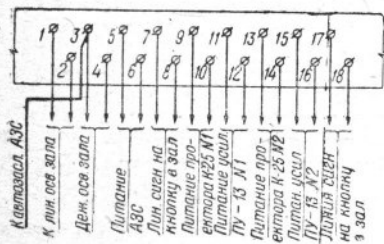 1 3 5 7 9 11 13 15 17
2 4 6 8 10 12 14 16 18
К автозасл. АЗС
К лин. осв зала
Деж. осв зала
Питание
АЗС
Лин. сигн на
кнопку в зал
Питание про-
ектора К-25 N1
Питание усил
ПУ-13 N1
Питание про-
ектора К-25 N2
Питан. усил
ПУ-13 N2
Линия сигн
на кнопку
в зал